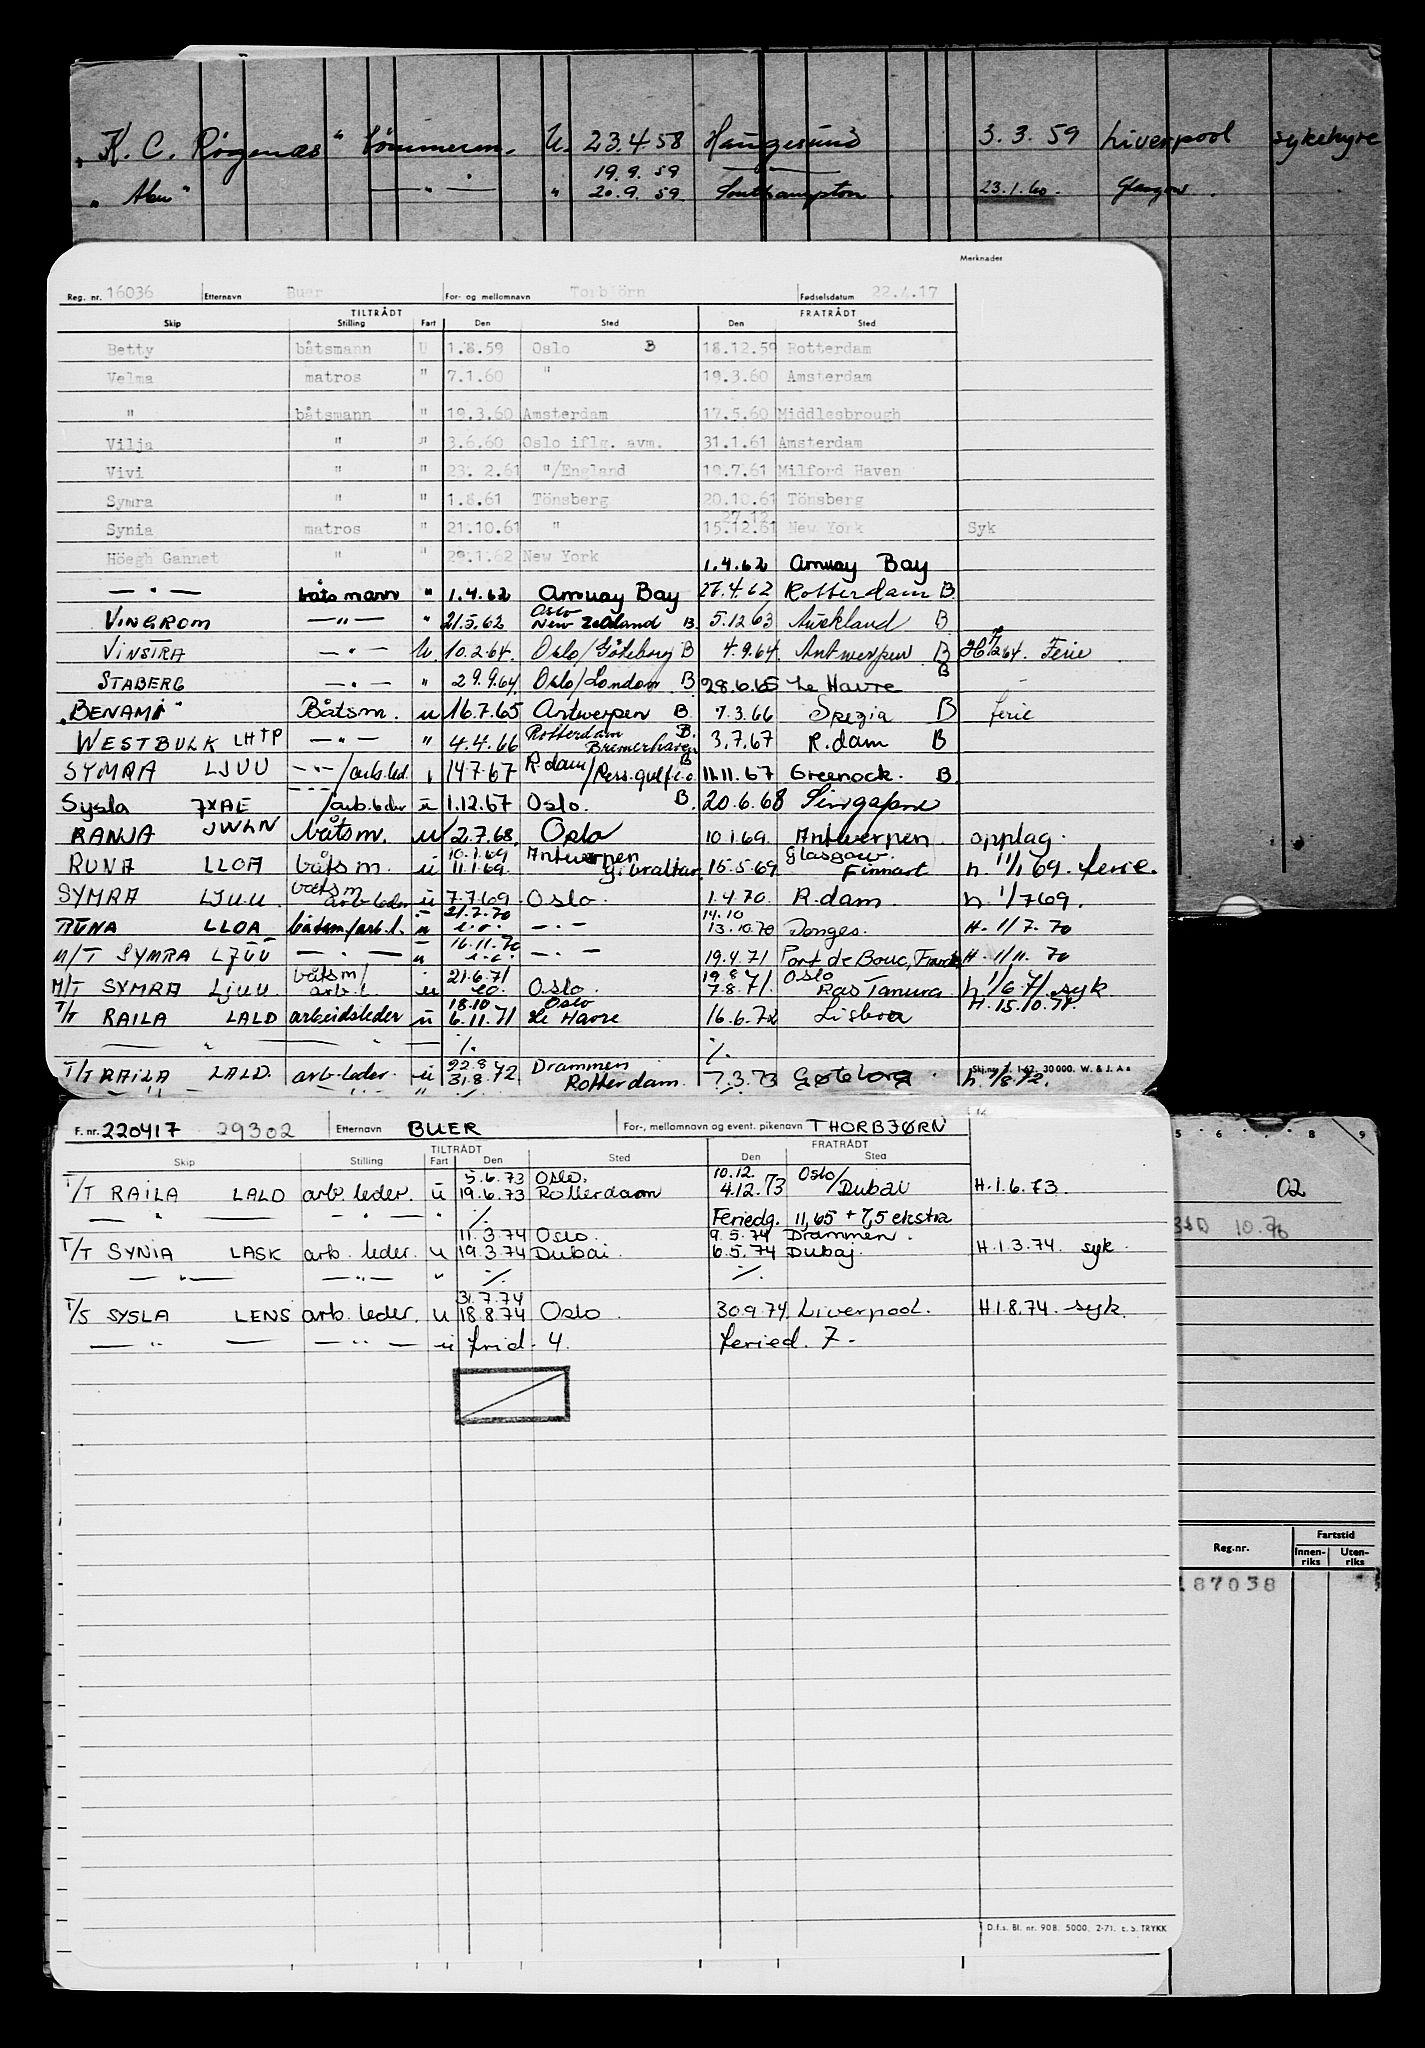 "K. C. Rogenæs" tømmerm. U. 23.4 58 Haugesund 3.3.59 Liverpool sykehyre
19.9.59
" — " — " 20.9.59 Southampton 23.1.60. Glasgow.
Merknader
Reg. nr. 16036 Etternavn Buer For- og mellomnavn Torbjörn Fødselsdatum 22.4.17
TILTRÅDT FRATRÅDT
Skip Stilling Fart Den Sted Den Sted
Betty båtsmann U 1.8.59 Oslo B 18.12.59 Rotterdam
Velma matros " 7.1.60 " 19.3.60 Amsterdam
" båtsmann " 19.3.60 Amsterdam 17.5.60 Middlesbrough
Vilja " " 3.6.60 Oslo iflg. avm. 31.1.61 Amsterdam
Vivi " " 23. 2.61 "/England 19.7.61 Milford Haven
Symra " " 1.8.61 Tönsberg 20.10.61 Tönsberg
27.12
Synia matros " 21.10.61 " 15.12.61 New York Syk
Höegh Gannet " " 29.1.62 New York 1.4.62 Amuay Bay
— " — båtsmann " 1.4.62 Amuay Bay 27.4.62 Rotterdam B
Oslo
VINGROM — " — " 21.5.62 New Zealand B. 5.12.63 Auckland B
VINSTRA — " — U. 10.2.64. Oslo/Göteborg B 4.9.64. Antwerpen B Ferie
STABERG — " — " 29.9.64. Oslo/London B 28.6.65 Le Havre B
"BENAMI" Båtsm. u 16.7.65 Antwerpen B 7.3.66 Spezia B ferie
WESTBULK LHTP — " — " 4.4.66 Rotterdam B. Bremerhaven 3.7.67 R.dam B
SYMRA LJUU — " — /arb.led. " 14.7.67 R.dam/Pers.gulf e.o. B 11.11.67 Greenock. B.
Sysla JXAE — " — /arb.leder u 1.12.67 Oslo. B. 20.6.68 Singapore
RANJA JWLN båtsm. u 2.7.68. Oslo 10.1.69. Antwerpen opplag.
10.1.69 Antwerpen Glasgow.
RUNA LLOA båtsm. u 11.1.69. Gibraltar 15.5.69 Finnart h. 11/1 69. ferie.
båtsm
SYMRA LJUU. arb.leder u 7.7.69 Oslo. 1.4.70. R.dam. h. 1/7 69.
21.7.70 14.10
RUNA LLOA båtsm/arb.l. u e.o. — " — 13.10.70 Donges. H. 1/7. 70
16.11.70
M/T SYMRA LJUU — " — u e.o. — " — 19.4.71 Port de Bouc, H. 1/11. 70
båtsm/ 21.6.71 19.8 Oslo
M/T SYMRA LJUU. arb.l. u eo. Oslo. 7.8.71. Ras Tanura h. 1/6.71. syk
18.10 Oslo H. 15.10.71.
T/T RAILA LALD arbeidsleder u 6.11.71 Le Havre 16.6.72 Lisboa
— " — — — ./. ./.
22.8 Drammen
T/T RAILA LALD. arb.leder. u 31.8.72. Rotterdam. 7.3.73 Gøteborg. h. 1/8.72.
Skj.nr. 7. 1-62. 30 000. W. & J. A s
F. nr. 220417 29302 Etternavn BUER For-, mellomnavn og event. pikenavn THORBJØRN
TILTRÅDT FRATRÅDT
Skip Stilling Fart Den Sted Den Sted
5.6.73 Oslo. 10.12. Oslo/
T/T RAILA LALD arb. leder. u 19.6.73 Rotterdam 4.12.73 Dubai H.1.6.73.
— " — — " — " ./. Feriedg. 11,65 + 7,5 ekstra
11.3.74 Oslo. 9.5.74 Drammen.
T/T SYNIA LASK arb. leder. u 19.3.74 Dubai. 6.5.74 Dubaj. H.1.3.74. syk.
— " — — " — " ./. ./.
31.7.74
T/S SYSLA LENS arb. leder. u 18.8.74 Oslo 30.9.74. Liverpool. H.1.8.74. syk.
— " — — " — u frid. 4. feried. 7 -
D.f.s. Bl. nr. 908. 5000. 2-71. E. S. TRYKK
5 6 7 8 9
02
10.76
Reg.nr. Fartstid
Innen-riks Uten-riks
187038